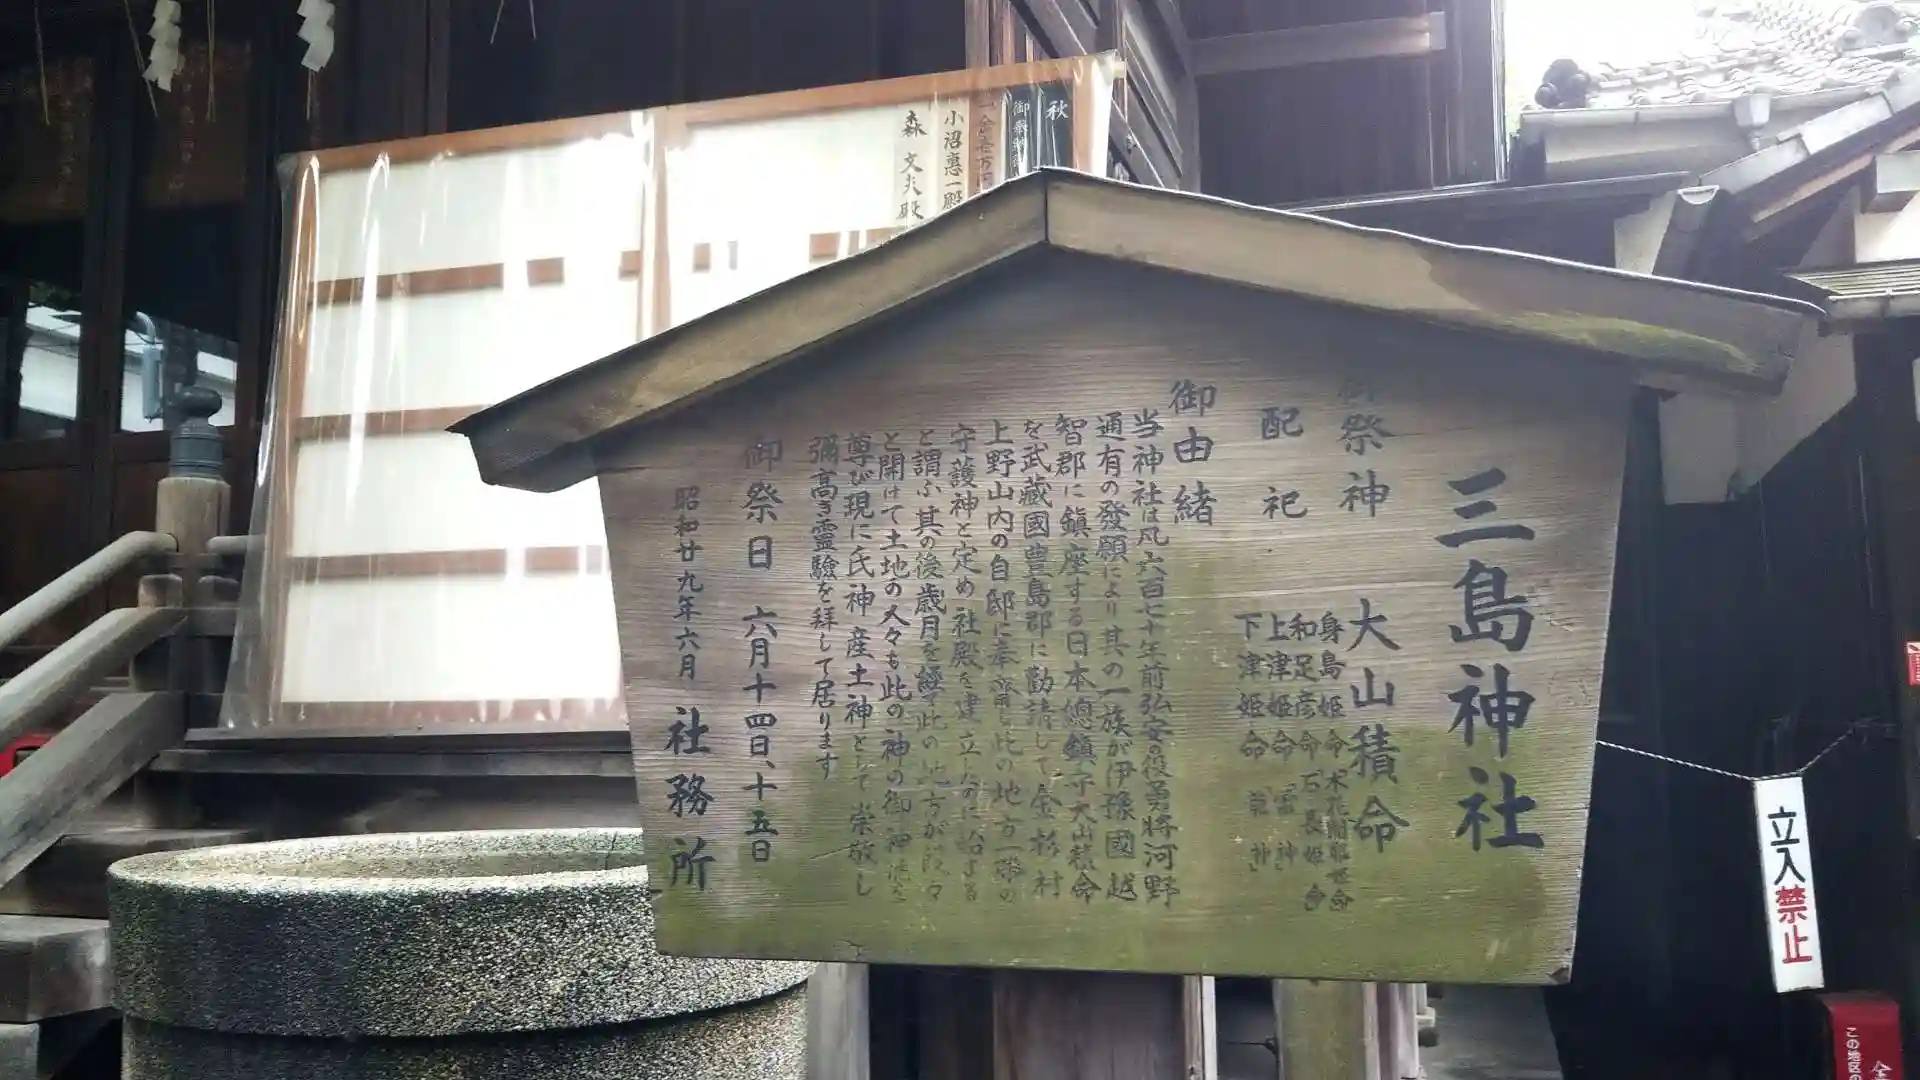 三島神社
御祭神 大山積命
配祀
身島姫命 木花開耶姫命
和足彦命 石長姫命
上津姫命
下津姫命
御由緒
当神社は凡六百七十年前弘安の役勇将河野
通有の發願により其の一族が伊豫國越
智郡に鎮座する日本總鎮守大山積命
を武藏國豊島郡に勸請して金杉村
上野山内の自邸に奉齋し此の地方一帯の
守護神と定め社殿を建立たのに始まる
と謂ふ其の後歳月を經て此の地方が段々
と開けて土地の人々も此の神の御神徳を
尊び現に氏神産土神として崇敬し
彌高き靈驗を拜して居ります
御祭日 六月十四日、十五日
昭和廿九年六月 社務所
秋
御奉納
一金壱万円
小沼惠一殿
森 文夫殿
立入禁止
この地区の